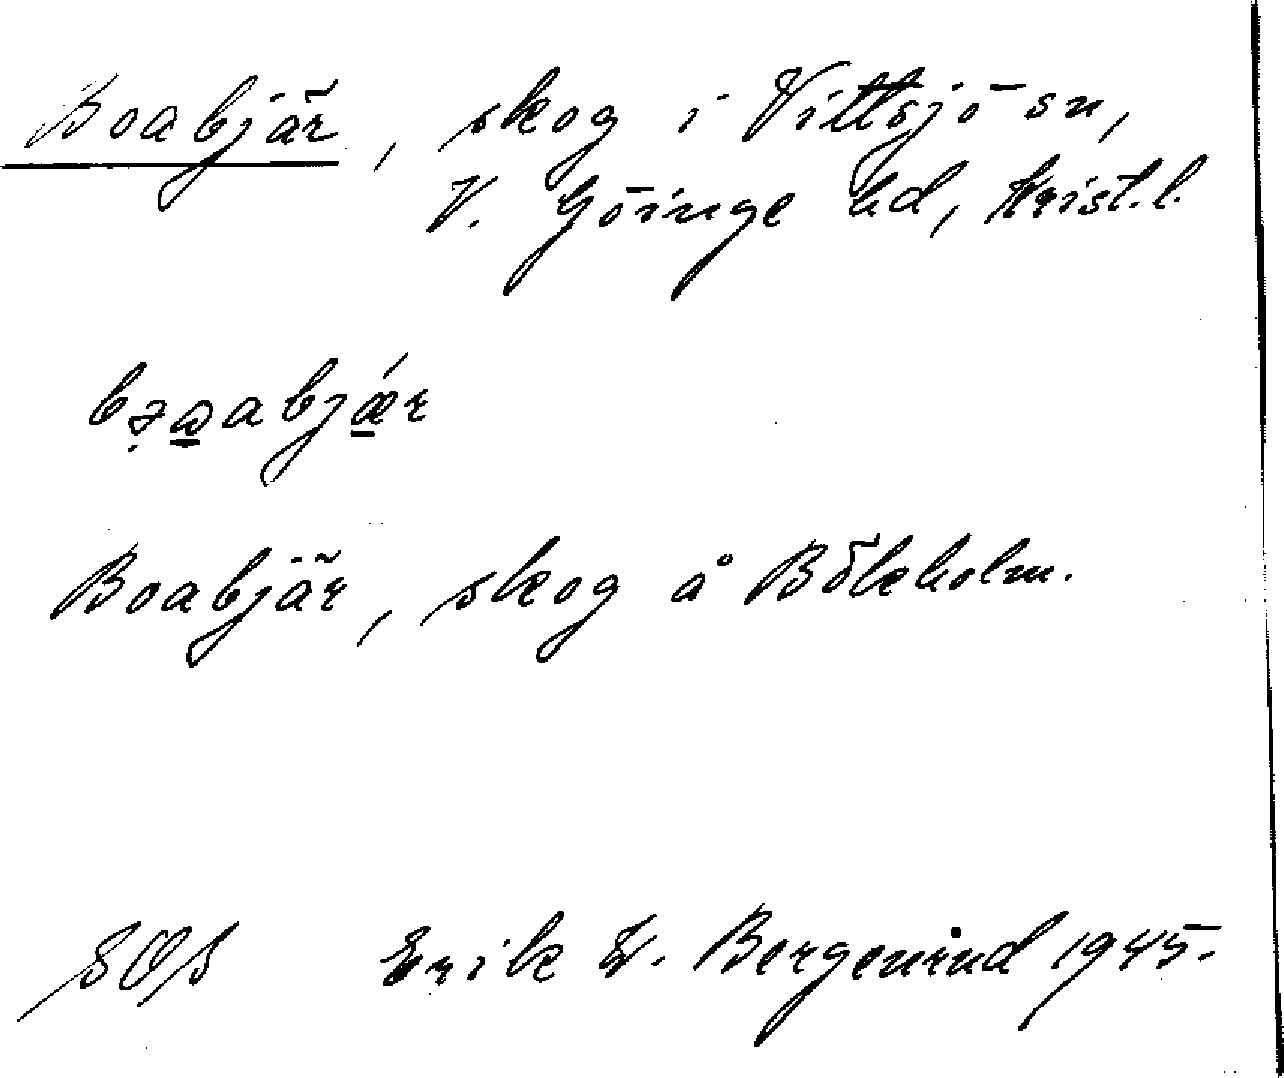 Boabjär, skog i Vittsjö sn,
V. Göinge hd, Krist.l.
bə̣a̲abjǽ̲r
Boabjär, skog å Bökeholm.
SOS Erik W. Bergenrud 1945.